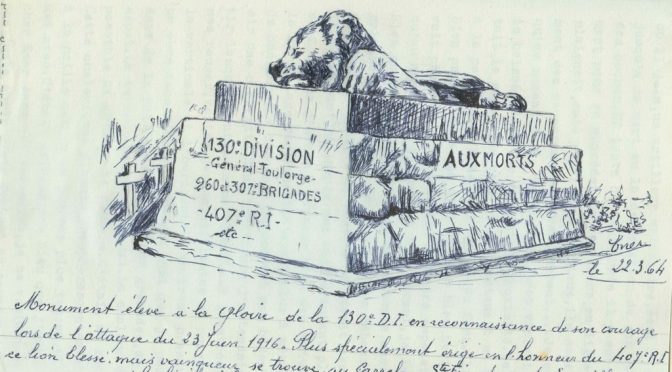 130e DIVISION
-Général-Toulorge-
260 et 307e BRIGADES
-407e R.I-
etc-
AUX MORTS
le 22.3.64
Monument élevé à la gloire de la 130e D.I. en reconnaissance de son courage
lors de l'attaque du 23 Juin 1916. Plus spécialement érigé en l'honneur du 407e R.I
ce lion blessé mais vainqueur se trouve au